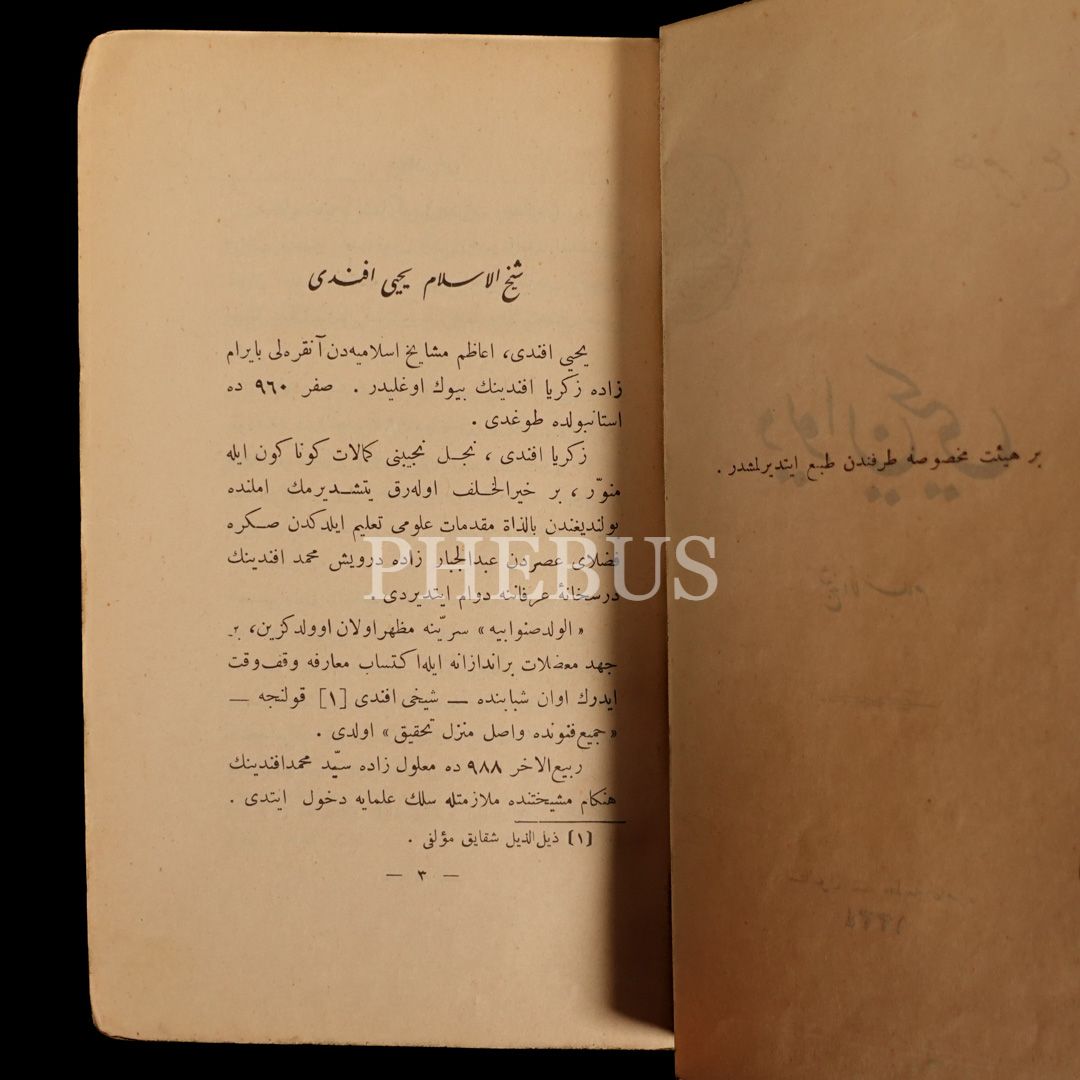 بر هيئت مخصوصه طرفندن طبع ايتديرلمشدر .
شيخ الاسلام يحيى افندى
يحيى افندى، اعاظم مشايخ اسلاميه‌دن آنقره‌لى بايرام
زاده زكريا افندينك بيوك اوغليدر . صفر ٩٦٠ ده
استانبولده طوغدى .
زكريا افندى ، نجل نجيبنى كمالات كوناكون ايله
منوّر ، بر خيرالخلف اوله‌رق يتشديرمك املنده
بولنديغندن بالذاة مقدمات علومى تعليم ايلدكدن صكره
فضلاى عصردن عبدالجبار زاده درويش محمد افندينك
درسخانهٔ عرفاننه دوام ايتديردى.
« الولد صنوابيه » سرّينه مظهر اولان اوولدكزين، بر
جهد معضلات براندازانه ايله اكتساب معارفه وقف وقت
ايدرك اوان شبابنده — شيخى افندى [١] قولنجه —
« جميع فنونده واصل منزل تحقيق » اولدى .
ربيع الاخر ٩٨٨ ده معلول زاده سيّد محمد افندينك
هنكام مشيختنده ملازمتله سلك علمايه دخول ايتدى .
[١] ذيل الذيل شقايق مؤلفى .
— ٣ —
PHEBUS